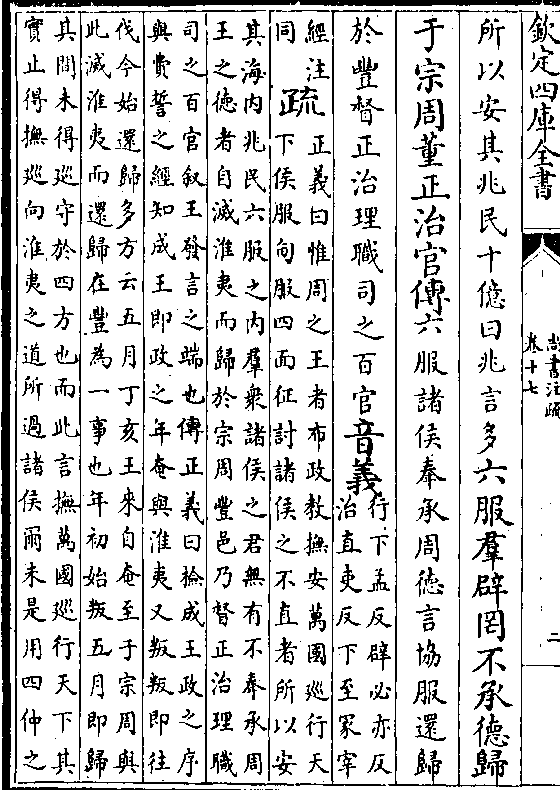 欽定四庫全書
尚書注疏
卷十七
二
所以安其兆民十億曰兆言多六服羣辟罔不承德歸
于宗周董正治官傳六服諸侯奉承周德言協服還歸
於豐督正治理職司之百官音義
行下孟反辟必亦反
治直吏反下至冢宰
經注
同
疏
正義曰惟周之王者布政教撫安萬國巡行天
下侯服甸服四面征討諸侯之不直者所以安
其海内兆民六服之内羣衆諸侯之君無有不奉承周
王之德者自滅淮夷而歸於宗周豐邑乃督正治理職
司之百官叙王發言之端也傳正義曰檢成王政之序
與費誓之經知成王即政之年奄與淮夷又叛叛即往
伐今始還歸多方云五月丁亥王來自奄至于宗周與
此滅淮夷而還歸在豐為一事也年初始叛五月即歸
其間未得巡守於四方也而此言撫萬國巡行天下其
實止得撫巡向淮夷之道所過諸侯爾未是用四仲之